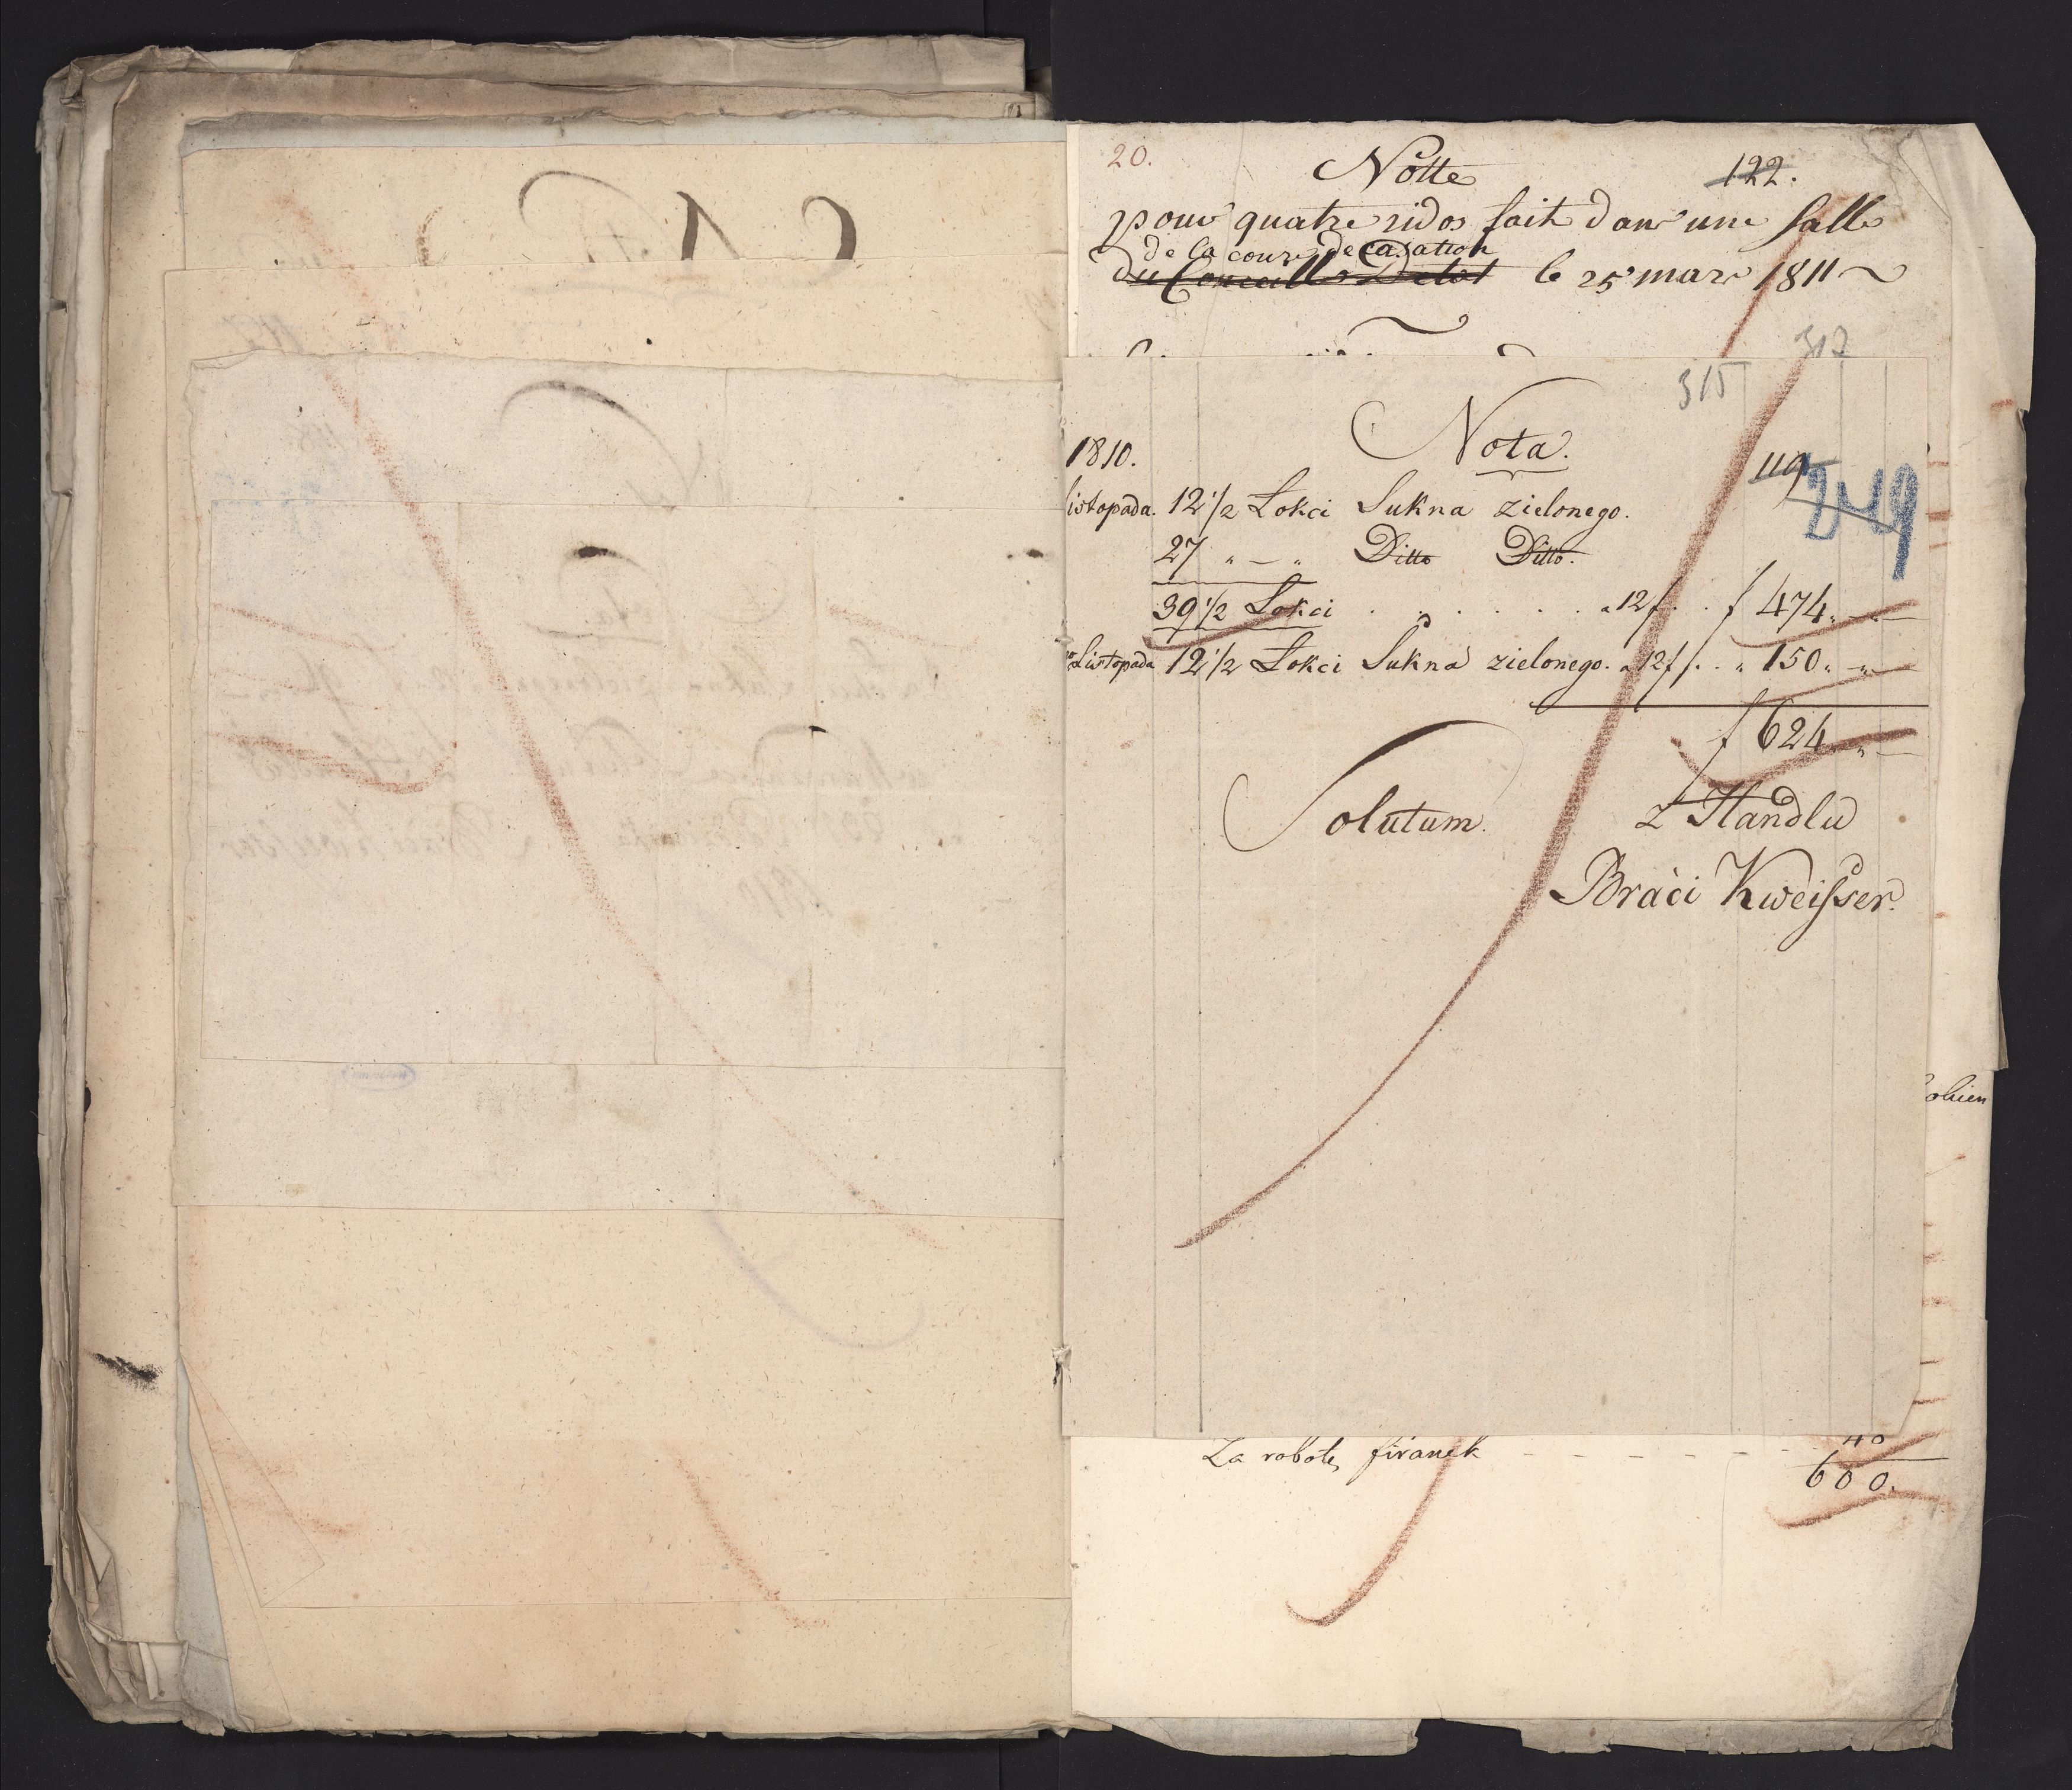 20.
Notte
122.
pour quatre ridos fait dans une Salle
de la cour de Casation
du Conceille Detat le 25 mars 1811
317
315
Nota.
1810.
119
listopada. 12 1/2 Łokci Sukna zielonego.
27 " — " Ditto Ditto.
39 1/2 Łokci . . . . . . a 12 f. . f 474. " —
Listopada 12 1/2 Łokci Sukna zielonego. a 12 f. . . " 150. " — "
f 624 " —
Solutum.
z Handlu
Braci Kweisser.
40
Za robotę firanek - - - - - -
600.